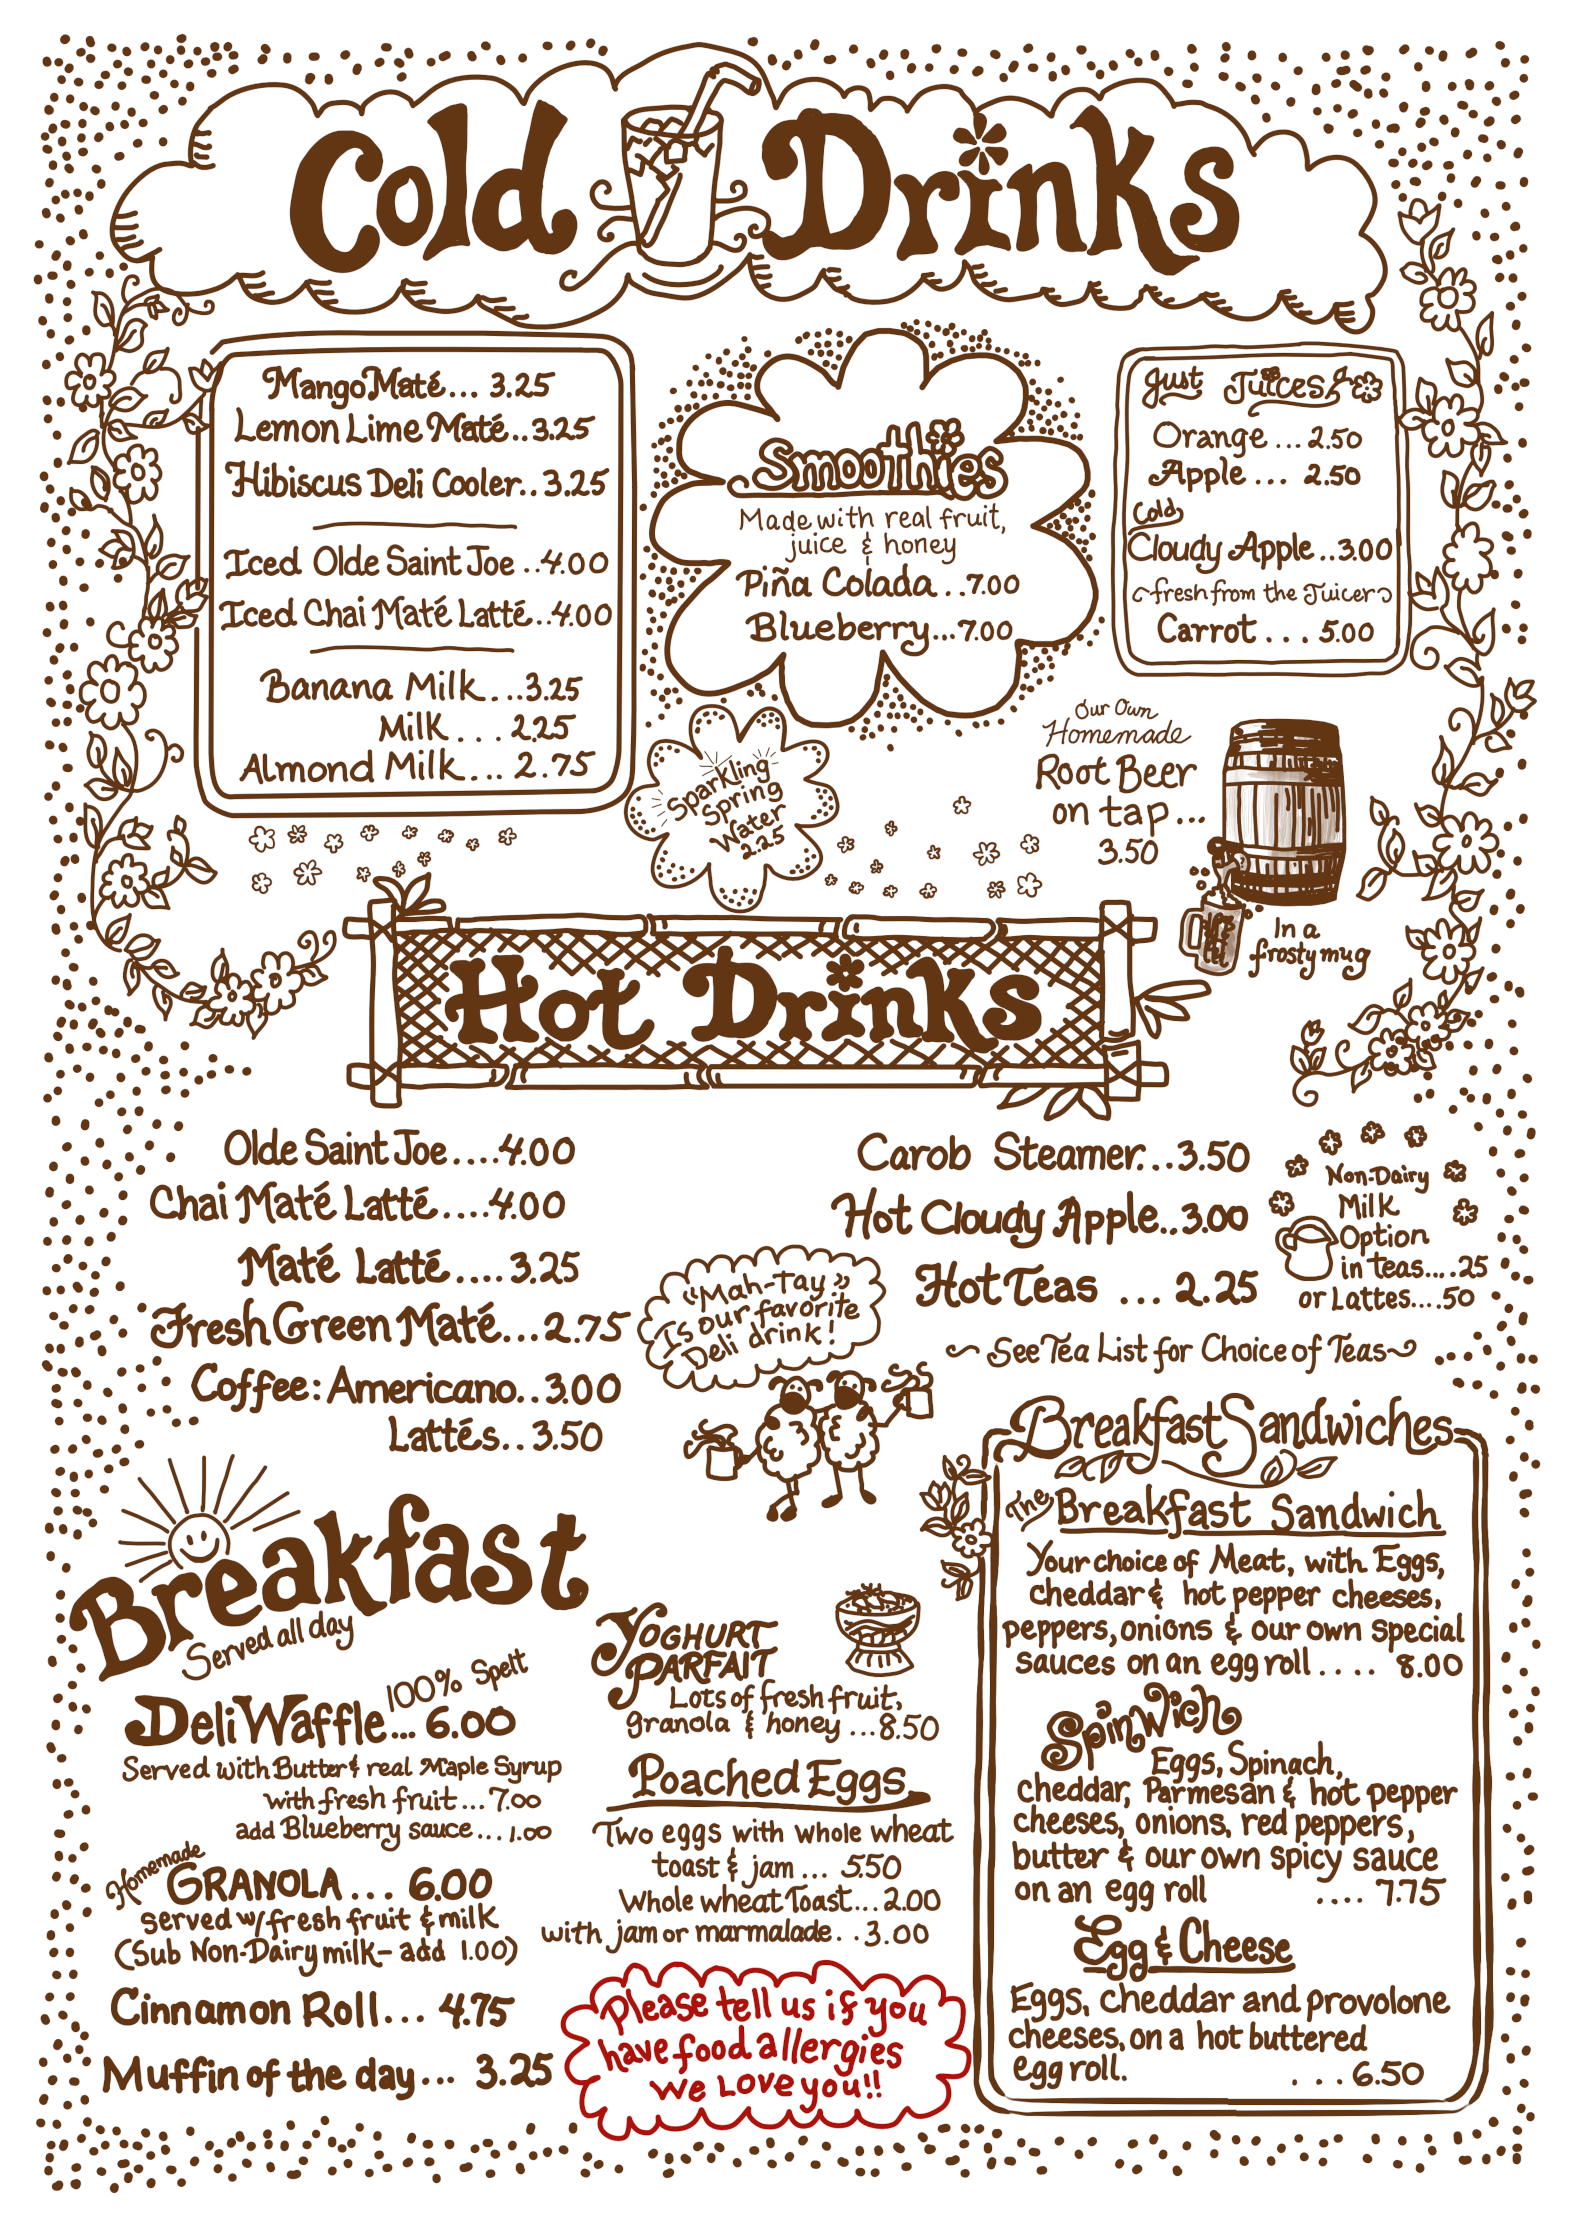 Cold Drinks
Mango Maté... 3.25
Lemon Lime Maté..3.25
Hibiscus Deli Cooler.. 3.25
Iced Olde Saint Joe ..4.00
Iced Chai Maté Latté...4.00
Banana Milk....3.25
Milk . . . 2.25
Almond Milk... 2.75
Smoothies
Made with real fruit,
juice & honey
Piña Colada . .7.00
Blueberry...7.00
Just Juices
Orange ... 2.50
Apple ... 2.50
Cold
Cloudy Apple..3.00
~fresh from the Juicer~
Carrot . . . 5.00
Sparkling
Spring
Water
2.25
Our Own
Homemade
Root Beer
on tap ...
3.50
In a
frosty mug
Hot Drinks
Olde Saint Joe....4.00
Chai Maté Latté....4.00
Maté Latté....3.25
Fresh Green Maté...2.75
Coffee: Americano..3.00
Lattés..3.50
"Mah-Tay"
Is our favorite
Deli drink!
Carob Steamer...3.50
Hot Cloudy Apple..3.00
Hot Teas ... 2.25
~ See Tea List for Choice of Teas~
Non-Dairy
Milk
Option
in teas....25
or Lattes....50
Breakfast
Served all day
100% Spelt
Deli Waffle... 6.00
Served with Butter & real Maple Syrup
with fresh fruit... 7.00
add Blueberry sauce... 1.00
Homemade
GRANOLA... 6.00
served w/fresh fruit & milk
(Sub Non-Dairy milk- add 1.00)
Cinnamon Roll... 4.75
Muffin of the day... 3.25
YOGHURT
PARFAIT
Lots of fresh fruit,
granola & honey ...8.50
Poached Eggs
Two eggs with whole wheat
toast & jam ... 5.50
Whole wheat Toast...2.00
with jam or marmalade. .3.00
Please tell us if you
have food allergies
We Love you!!
Breakfast Sandwiches
The Breakfast Sandwich
Your choice of Meat, with Eggs,
cheddar & hot pepper cheeses,
peppers, onions & our own special
sauces on an egg roll.... 8.00
SpinWich
Eggs, Spinach,
cheddar, Parmesan & hot pepper
cheeses, onions, red peppers,
butter & our own spicy sauce
on an egg roll .... 7.75
Egg & Cheese
Eggs, cheddar and provolone
cheeses, on a hot buttered
egg roll. . . . 6.50